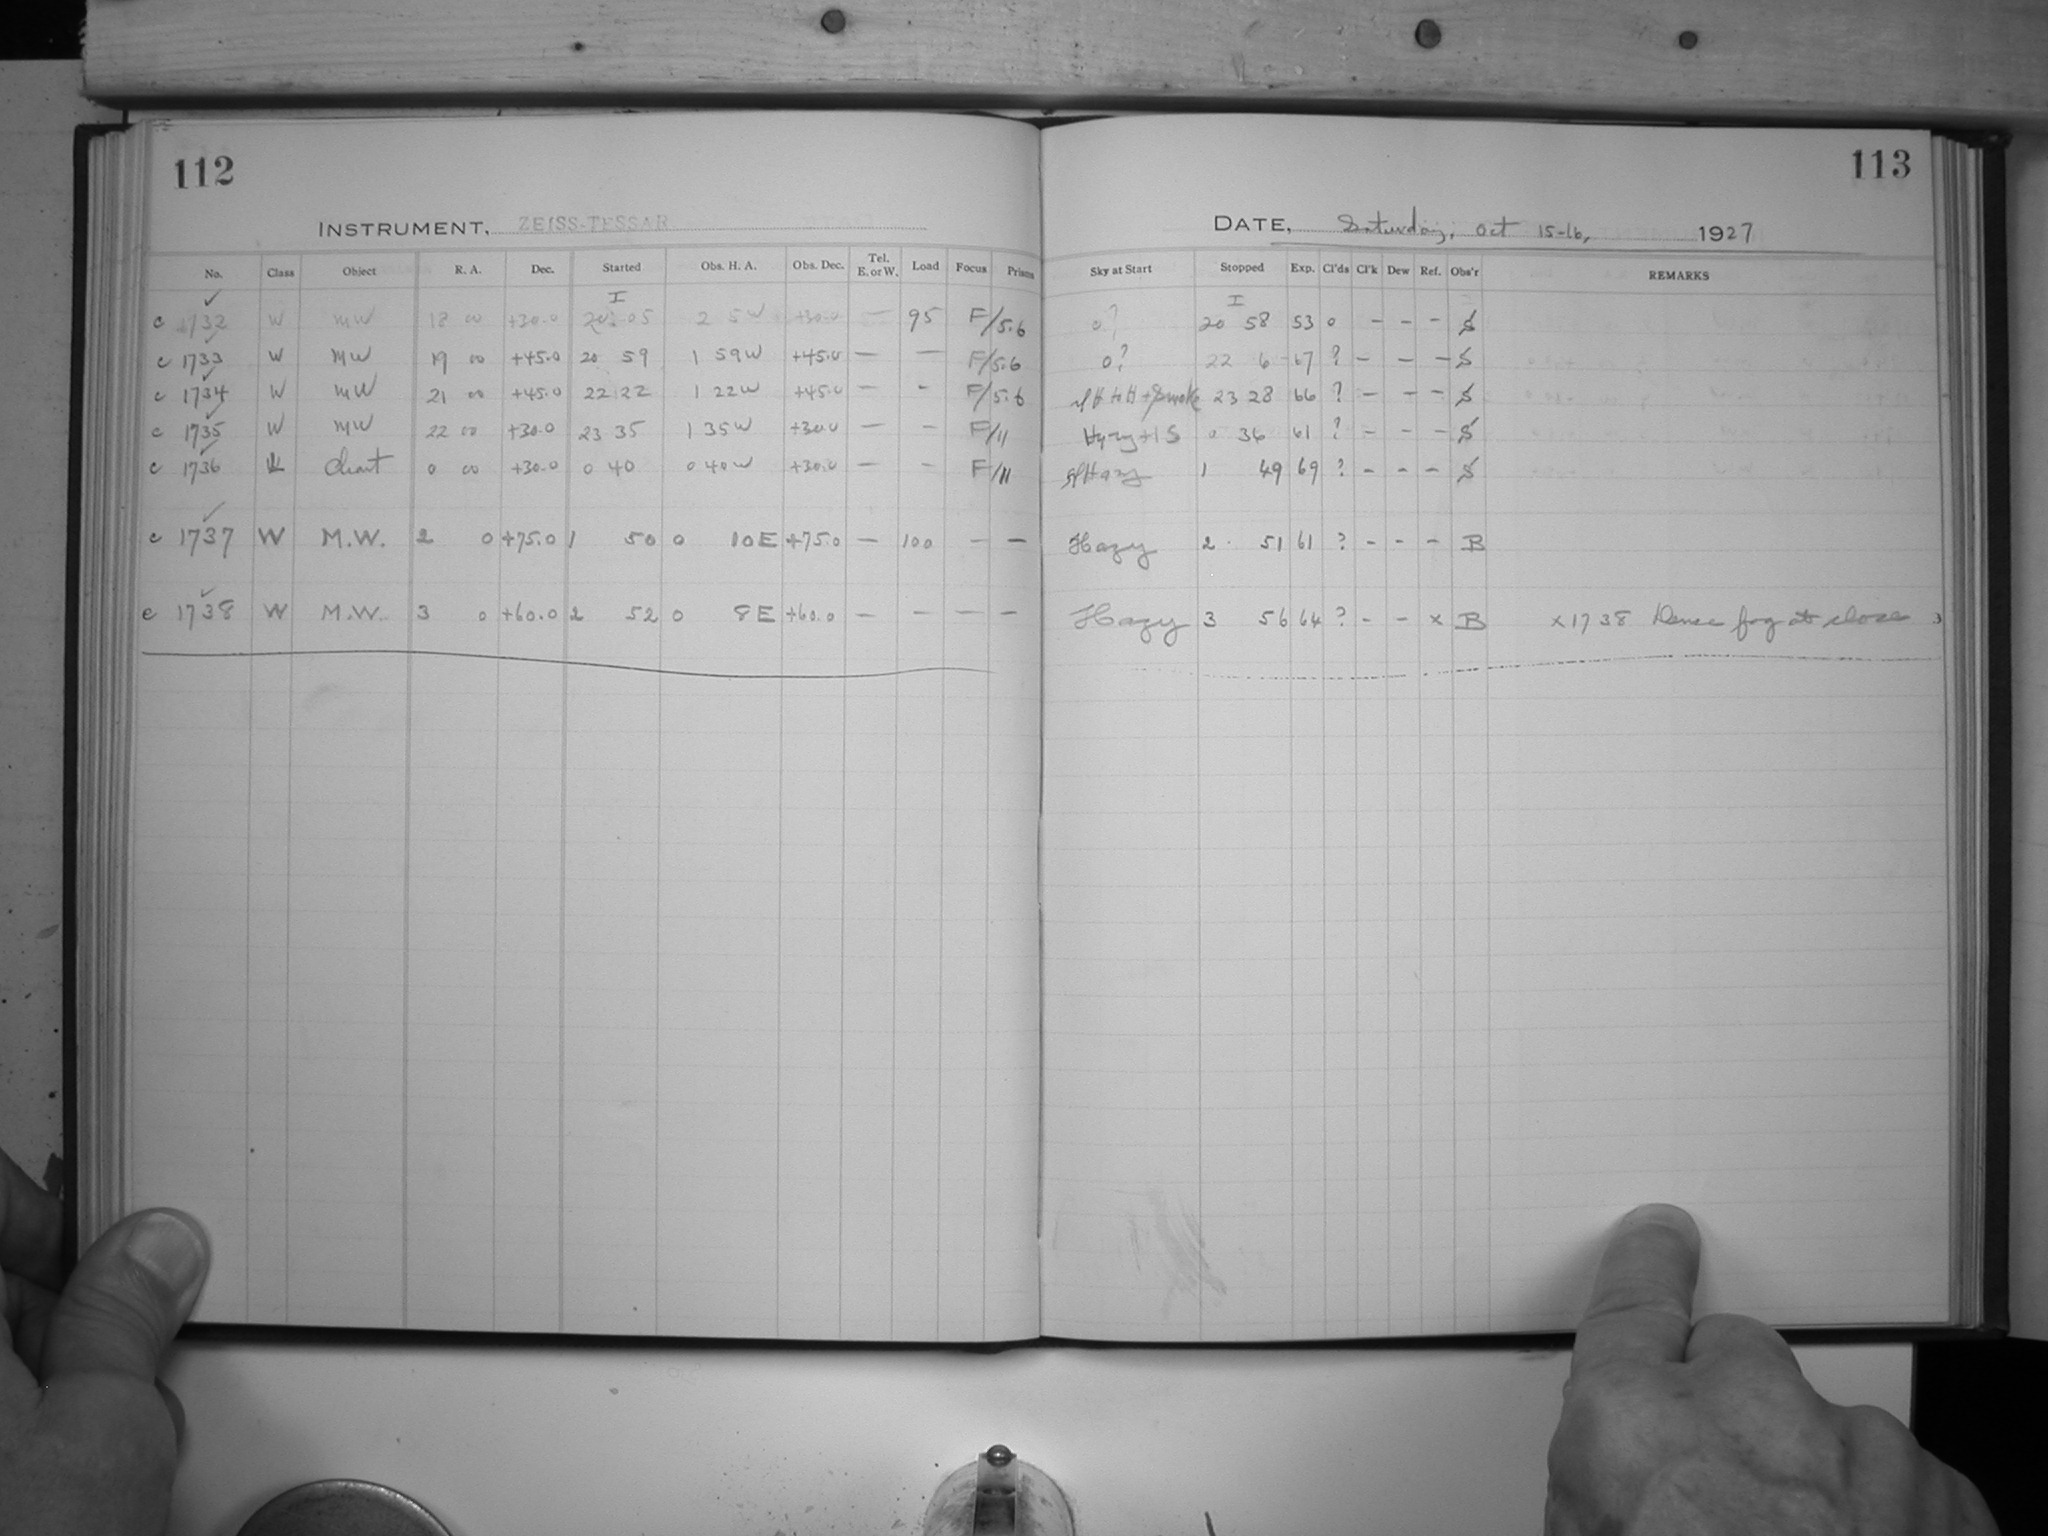 112
INSTRUMENT, ZEISS-TESSAR
No. Class Object R. A. Dec. Started Obs. H. A. Obs. Dec. Tel. E. or W. Load Focus Prism
I
c 1732 W MW 18 00 +30.0 20 05 2 5W +30.0 — 95 F/5.6
c 1733 W MW 19 00 +45.0 20 59 1 59W +45.0 — — F/5.6
c 1734 W MW 21 00 +45.0 22 22 1 22W +45.0 — - F/5.6
c 1735 W MW 22 00 +30.0 23 35 1 35W +30.0 — - F/11
c 1736 Chart 0 00 +30.0 0 40 0 40W +30.0 — - F/11
c 1737 W M.W. 2 0 +75.0 1 50 0 10E +75.0 — 100 — —
c 1738 W M.W. 3 0 +60.0 2 52 0 8E +60.0 — — — —
113
DATE, Saturday, Oct 15-16, 1927
Sky at Start Stopped Exp. Cl'ds Cl'k Dew Ref. Obs'r REMARKS
I
0? 20 58 53 0 - - - S
0? 22 6 67 ? - - - S
H to H + Smoke 23 28 66 ? - - - S
0 36 61 ? - - - S
Hazy 1 49 69 ? - - - S
Hazy 2 51 61 ? - - - B
Hazy 3 56 64 ? - - x B x 1738 Dense fog at close